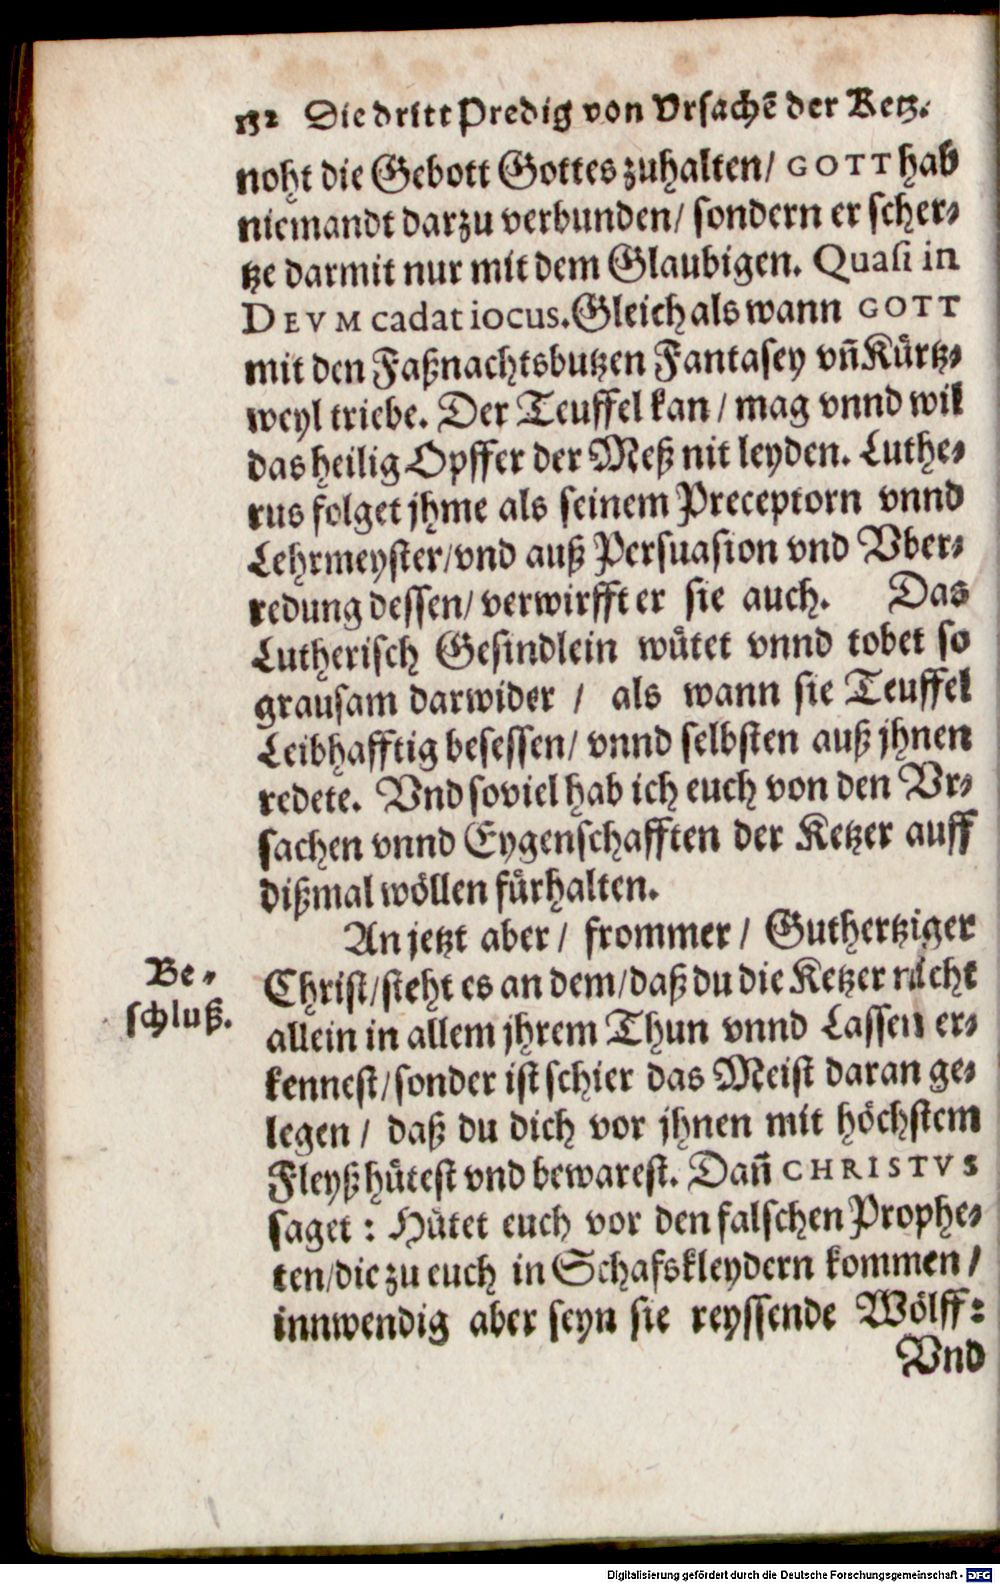 132 Die dritt Predig von Vrsachē der Ketz.
noht die Gebott Gottes zuhalten/ GOTT hab
niemandt darzu verbunden/ sondern er scher-
tze darmit nur mit dem Glaubigen. Quasi in
DEVM cadat iocus. Gleich als wann GOTT
mit den Faßnachtsbutzen Fantasey vñ Kürtz-
weyl triebe. Der Teuffel kan / mag vnnd wil
das heilig Opffer der Meß nit leyden. Luthe-
rus folget jhme als seinem Preceptorn vnnd
Lehrmeyster/ vnd auß Persuasion vnd Vber-
redung dessen/ verwirfft er sie auch. Das
Lutherisch Gesindlein wütet vnnd tobet so
grausam darwider / als wann sie Teuffel
Leibhafftig besessen/ vnnd selbsten auß jhnen
redete. Vnd soviel hab ich euch von den Vr-
sachen vnnd Eygenschafften der Ketzer auff
dißmal wöllen fürhalten.
An jetzt aber / frommer / Guthertziger
Be-
schluß.
Christ/ steht es an dem/ daß du die Ketzer nicht
allein in allem jhrem Thun vnnd Lassen er-
kennest/ sonder ist schier das Meist daran ge-
legen / daß du dich vor jhnen mit höchstem
Fleyß hütest vnd bewarest. Dañ CHRISTVS
saget : Hütet euch vor den falschen Prophe-
ten/ die zu euch in Schafskleydern kommen /
innwendig aber seyn sie reyssende Wölff:
Vnd
Digitalisierung gefördert durch die Deutsche Forschungsgemeinschaft - DFG